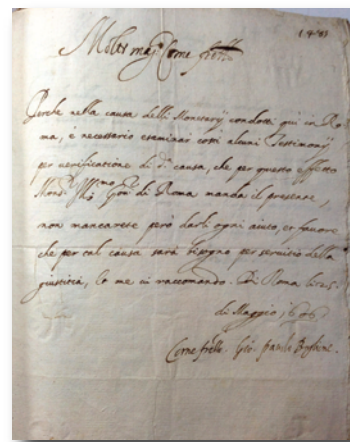 Molto mag.co Come fr̄ello
Perche nella causa delli Monetarij condotti qui in Ro
ma, è necessario esaminar costì alcuni Testimonij
per verificatione di d.ª causa, che per questo effetto
Mons.r Ill.mo Gov.re di Roma manda il presente,
non mancarete però darli ogni aiuto, et favore
che per tal causa sarà bisogno per servitio della
giustitia, et me vi raccomando. Di Roma li 25
di Maggio 1606
Come frello. Gio: Paulo